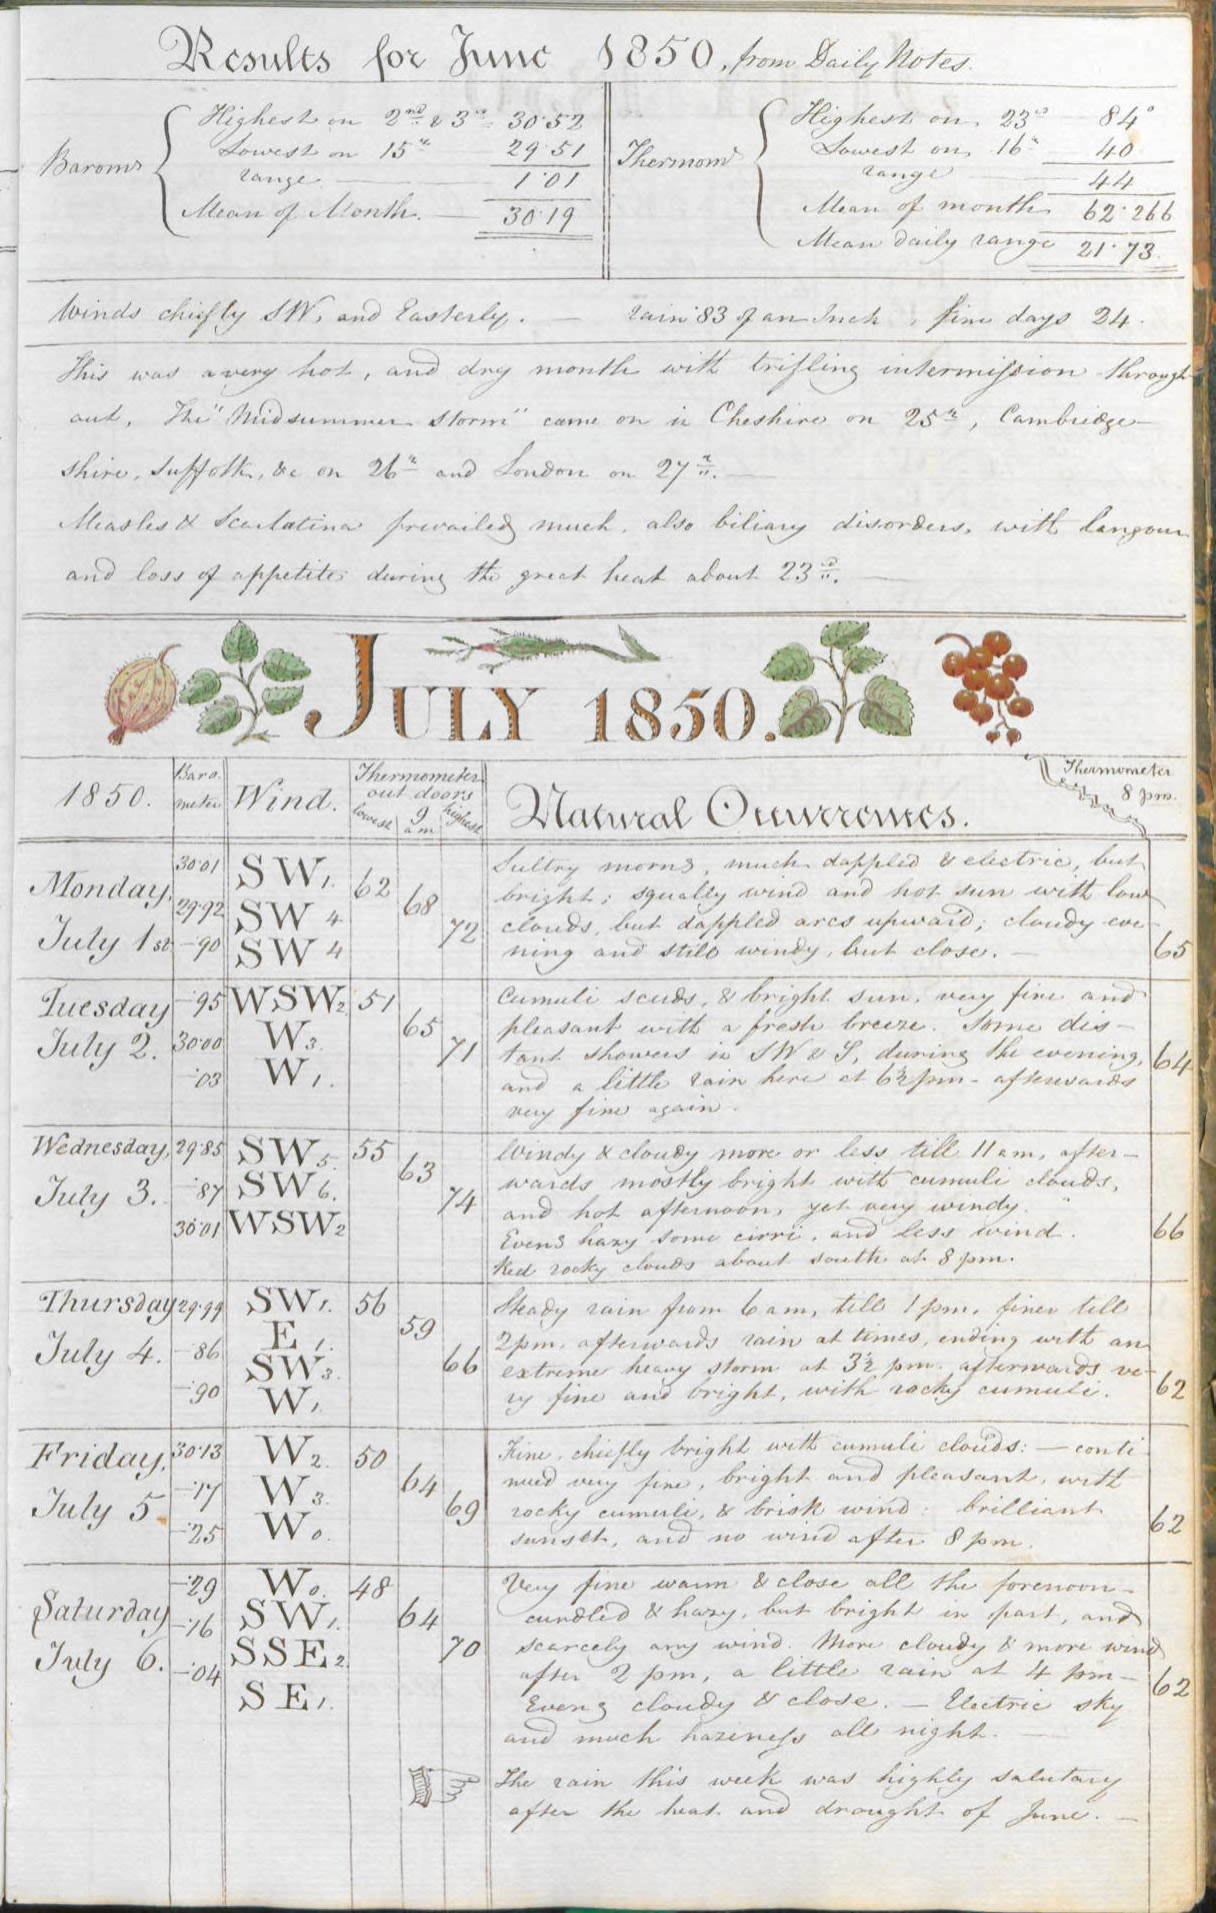 Results for June 1850, from Daily Notes.
Baromr
Highest on 2nd & 3rd 30·52
Lowest on 15th 29·51
range 1·01
Mean of Month. 30·19
Thermomr
Highest on 23rd 84°
Lowest on 16th 40
range 44
Mean of month 62·266
Mean daily range 21·73
Winds chiefly SW, and Easterly. — rain ·83 of an Inch, fine days 24.
This was a very hot, and dry month with trifling intermission through
out, The "Midsummer storm" came on in Cheshire on 25th, Cambridge
shire, Suffolk, &c on 26th and London on 27th. —
Measles & Scarlatina prevailed much, also biliary disorders, with langour
and loss of appetite during the great heat about 23rd. —
JULY 1850.
1850.
Baro
meter
Wind.
Thermometer
out doors
lowest 9 am highest
Natural Occurrences.
Thermometer
8 pm.
Monday,
July 1st
30·01
29·92
—·90
SW1.
SW 4
SW 4
62
68
72
Sultry morng, much dappled & electric, but
bright; squally wind and hot sun with low
clouds, but dappled arcs upward; cloudy eve
ning and still windy, but close. —
65
Tuesday
July 2.
—·95
30·00
—·03
WSW2
W3.
W1.
51
65
71
Cumuli scuds, & bright sun, very fine and
pleasant with a fresh breeze. Some dis-
tant showers in SW & S, during the evening,
and a little rain here at 6½ pm - afterwards
very fine again.
64
Wednesday,
July 3.
29·85
—·87
30·01
SW5.
SW6.
WSW2
55
63
74
Windy & cloudy more or less till 11 am, after-
wards mostly bright with cumuli clouds,
and hot afternoon, yet very windy.
Eveng hazy some cirri, and less wind.
Red rocky clouds about south at 8 pm.
66
Thursday
July 4.
29·99
—·86
—·90
SW1.
E 1.
SW3.
W1.
56
59
66
Steady rain from 6 am, till 1 pm, finer till
2 pm, afterwards rain at times, ending with an
extreme heavy storm at 3½ pm. afterwards ve-
ry fine and bright, with rocky cumuli.
62
Friday,
July 5
30·13
—·17
—·25
W2.
W3.
W0.
50
64
69
Fine, chiefly bright with cumuli clouds: — conti
nued very fine, bright and pleasant, with
rocky cumuli, & brisk wind: brilliant
sunset, and no wind after 8 pm.
62
Saturday
July 6.
—·29
—·16
—·04
W0.
SW1.
SSE2.
SE1.
48
64
70
Very fine warm & close all the forenoon -
curdled & hazy, but bright in part, and
scarcely any wind. More cloudy & more wind
after 2 pm, a little rain at 4 pm -
Eveng cloudy & close. — Electric sky
and much haziness all night. —
62
The rain this week was highly salutary
after the heat and drought of June. —